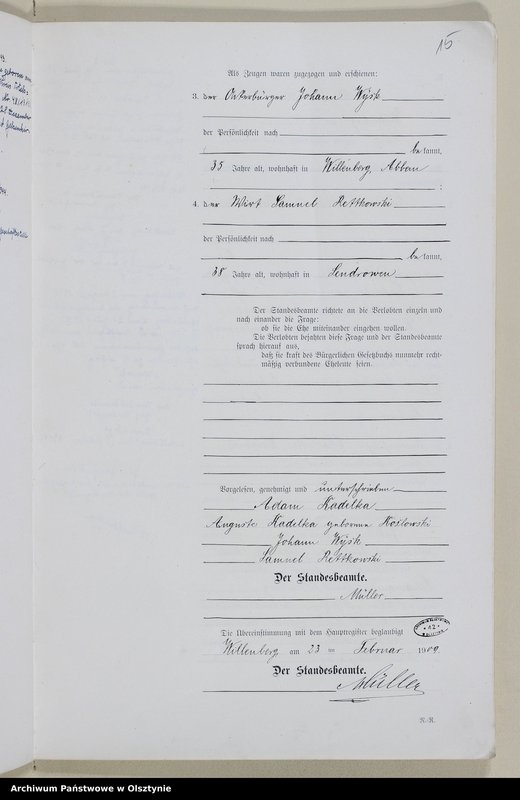 15
Als Zeugen waren zugezogen und erschienen:
3. der Ortsbürger Johann Wysk
der Persönlichkeit nach
be kannt,
35 Jahre alt, wohnhaft in Willenberg, Abbau
4. der Wirt Samuel Rettkowski
der Persönlichkeit nach
be kannt,
38 Jahre alt, wohnhaft in Lendrowen
Der Standesbeamte richtete an die Verlobten einzeln und
nach einander die Frage:
ob sie die Ehe miteinander eingehen wollen.
Die Verlobten bejahten diese Frage und der Standesbeamte
sprach hierauf aus,
daß sie kraft des Bürgerlichen Gesetzbuchs nunmehr recht-
mäßig verbundene Eheleute seien.
Vorgelesen, genehmigt und unterschrieben
Adam Kadelka
Auguste Kadelka geborene Koslowski
Johann Wysk
Samuel Rettkowski
Der Standesbeamte.
Müller
Die Übereinstimmung mit dem Hauptregister beglaubigt
Willenberg am 23 ten Februar 1909
Der Standesbeamte.
Müller
Archiwum Państwowe w Olsztynie